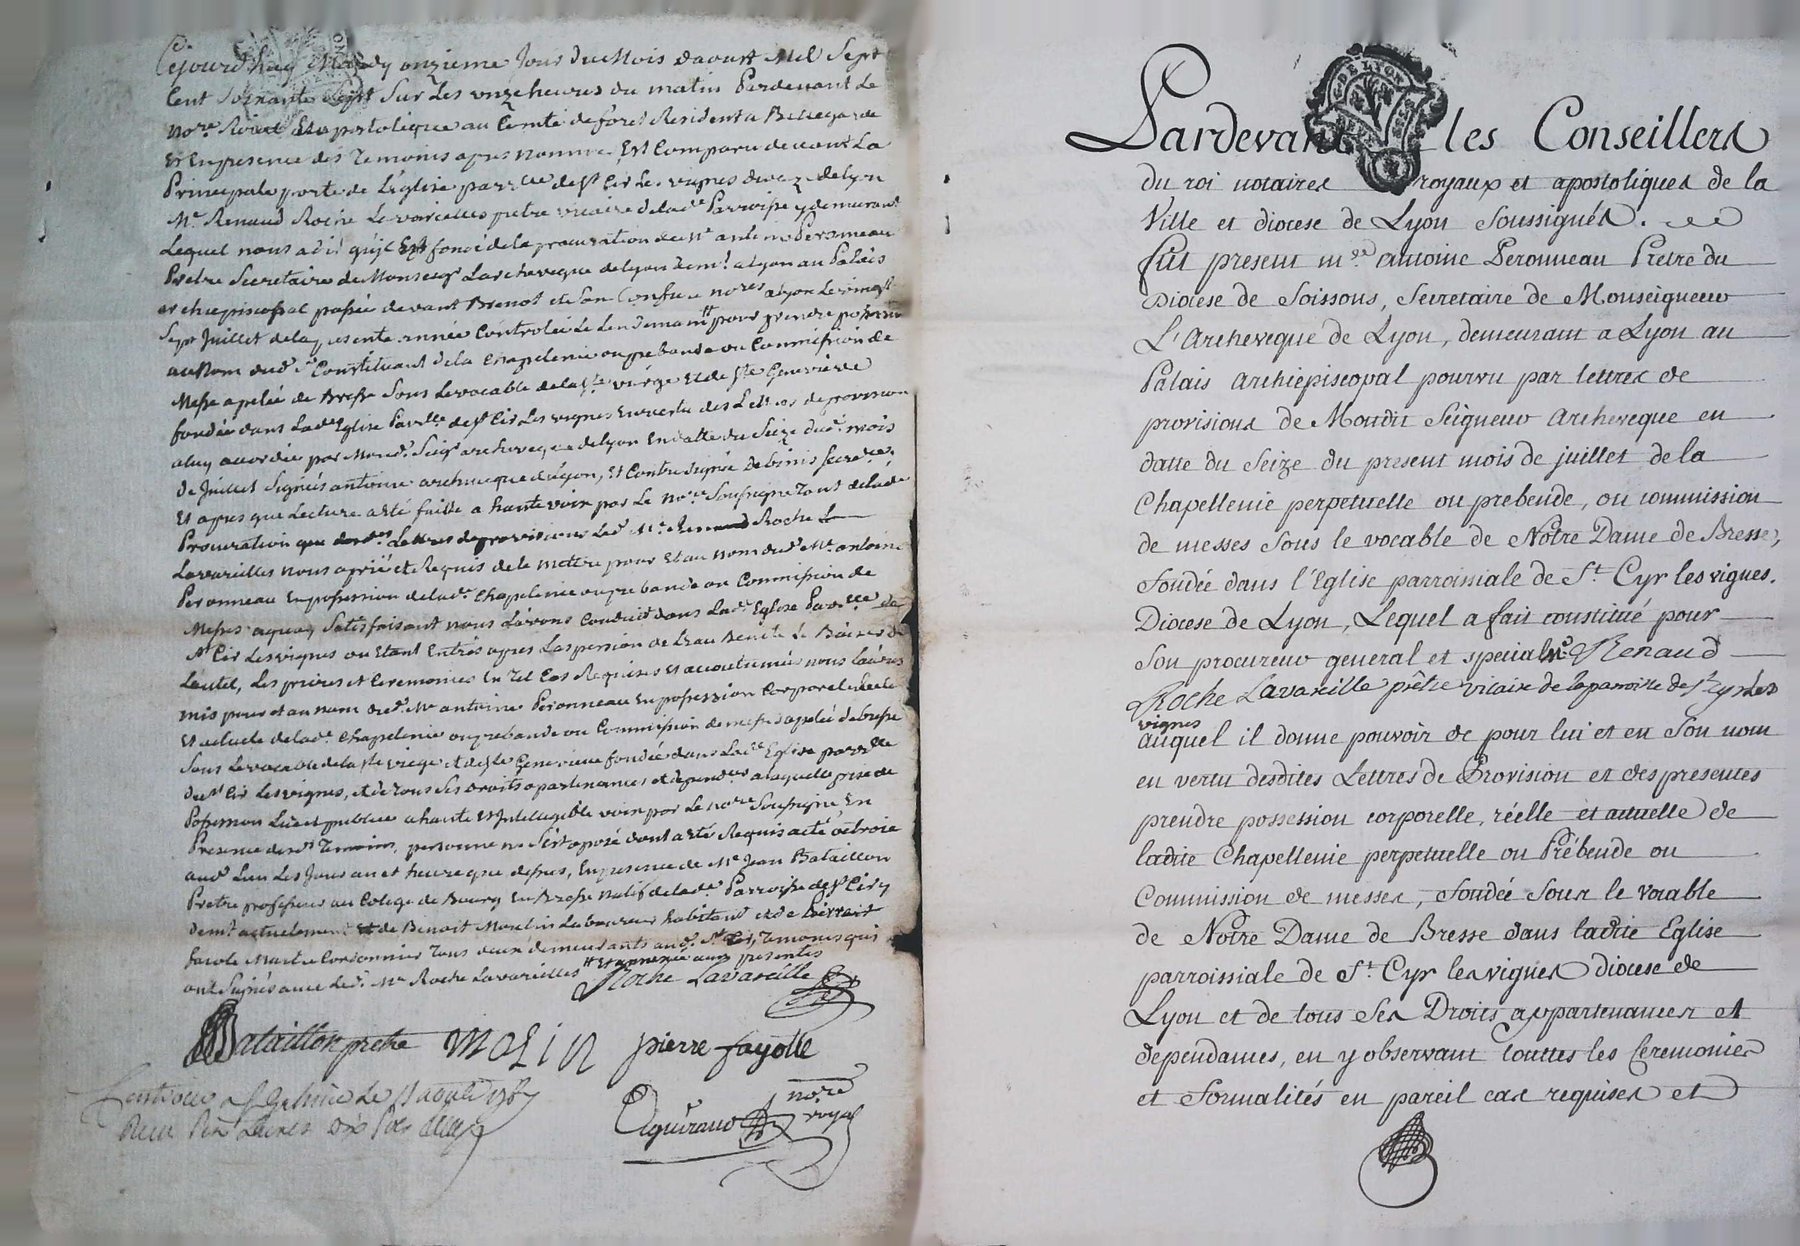 Cejourdhuy onzieme Jour du Mois daoust Mil Sept
Cent Soixante Sept Sur Les unze heures du matin Pardevant Le
no.re Roial Et apostolique au Comté de forés Resident a Bellegarde
Et En presence des Temoins apres nommés Est Comparu devant La
Principale porte de L'Eglise parr.lle de S.t Cir Les vignes dioceze de Lyon
M.e Renaud Roche Lavareilles prêtre vicaire de lad.e Parroisse y demurant
Lequel nous a dit quil Est fondé de la procuration de M.e antoine Peronneau
Prêtre Secretaire de Monseig.r L'archeveque de Lyon dem.t a Lyon au Palais
archiepiscopal passée devant Brenot et Son Confrere no.res a Lyon Le vingt
Sept Juillet de la presente année Controlée Le Lendemain pour prendre possession
au Nom dud. S.r Constituant de la Chapelenie ou prebande ou Commission de
Messe apelée de Bresse Sous Le vocable de la S.te viérge Et de S.te Genevieve
fondée dans Lad.e Eglise Parr.lle de S.t Cir Les vignes En vertu des Lettres de provision
a luy accordée par Mond. Seig.r archeveque de Lyon En datte du Seize dud. mois
de Juillet Signées antoine archeveque de Lyon, Et Contresignée Debinis Secre.re,
Et apres que Lecture a été faitte a haute voix par Le no.re Soussigné Tant de lade
Procuration que desd.es Lettres de provisions Led. M.e Renaud Roche
Lavareilles nous a prié et Requis de le mettre pour Et au nom dud. M.e antoine
Peronneau En possession de lad.e Chapelenie ou prebande ou Commission de
Messes a quoy Satisfaisant nous L'avons Conduit dans Lad.e Eglise Parr.lle de
S.t Cir Les vignes ou Etant Entrés apres Laspersion de L'eau Benite Le Baiser de
Lautel, Les prieres et Ceremonies En Tel Cas Requises et accoutumées nous L'avons
mis pour et au nom dud. M.e antoine Peronneau En possession Corporel réelle
Et actuele de lad.e Chapelenie ou prebande ou Commission de messes apelée de bresse
Sous Le vocable de la S.te viérge et de S.te Genevieve fondée dans Lad.e Eglise parr.lle
de S.t Cir Les vignes, et de tous Ses droits apartenances et dependces a laquelle prise de
Possession Lue et publiée a haute et Inteligible voix par Le no.re Soussigné En
Presence desd.s Temoins, personne ne S'est oposé dont a été Requis acte octroié
aud. Lieu Les Jours an et heure que dessus, En presence de M.e Jean Bataillon
Prêtre professeur au Colege de Bourg En Bresse natif de lad.e Parroisse de S.t Cir y
dem.t actuelement et de Benoit Moulin Laboureur habitant et de Pierre
fayole Maitre Cordonnier Tous deux demeurants aud. S.t Cir, Temoins qui
ont Signés avec Led. M.e Roche Lavareilles Et apresence aux presentes
Roche Lavareille
Bataillon pretre MOLIN pierre fayolle
no.re
royal
Pardevant les Conseillers
du roi notaires royaux et apostoliques de la
Ville et diocese de Lyon Soussignés.
fut present m.re antoine Peronneau Prêtre du
Diocese de Soissons, Secretaire de Monseigneur
L'Archeveque de Lyon, demeurant a Lyon au
Palais Archiepiscopal pourvu par lettres de
provisions de Moudit Seigneur Archeveque en
datte du Seize du present mois de juillet de la
Chapellenie perpetuelle ou prebende, ou commission
de messes Sous le vocable de Notre Dame de Bresse,
fondée dans l'Eglise parroissiale de S.t Cyr les vignes.
Diocese de Lyon, Lequel a fait constitué pour
Son procureur general et special M.e Renaud
Roche Lavareille prêtre vicaire de la paroisse de S.t Cyr les
vignes
auquel il donne pouvoir de pour lui et en Son nom
en vertu desdites Lettres de Provision et des presentes
prendre possession corporelle, réelle et actuelle de
ladite Chapellenie perpetuelle ou Prébende ou
Commission de messes, fondée Sous le vocable
de Notre Dame de Bresse dans ladite Eglise
parroissiale de S.t Cyr les vignes diocese de
Lyon et de tous Ses Droits appartenances et
dependances, en y observant touttes les Ceremonies
et formalités en pareil cas requises et